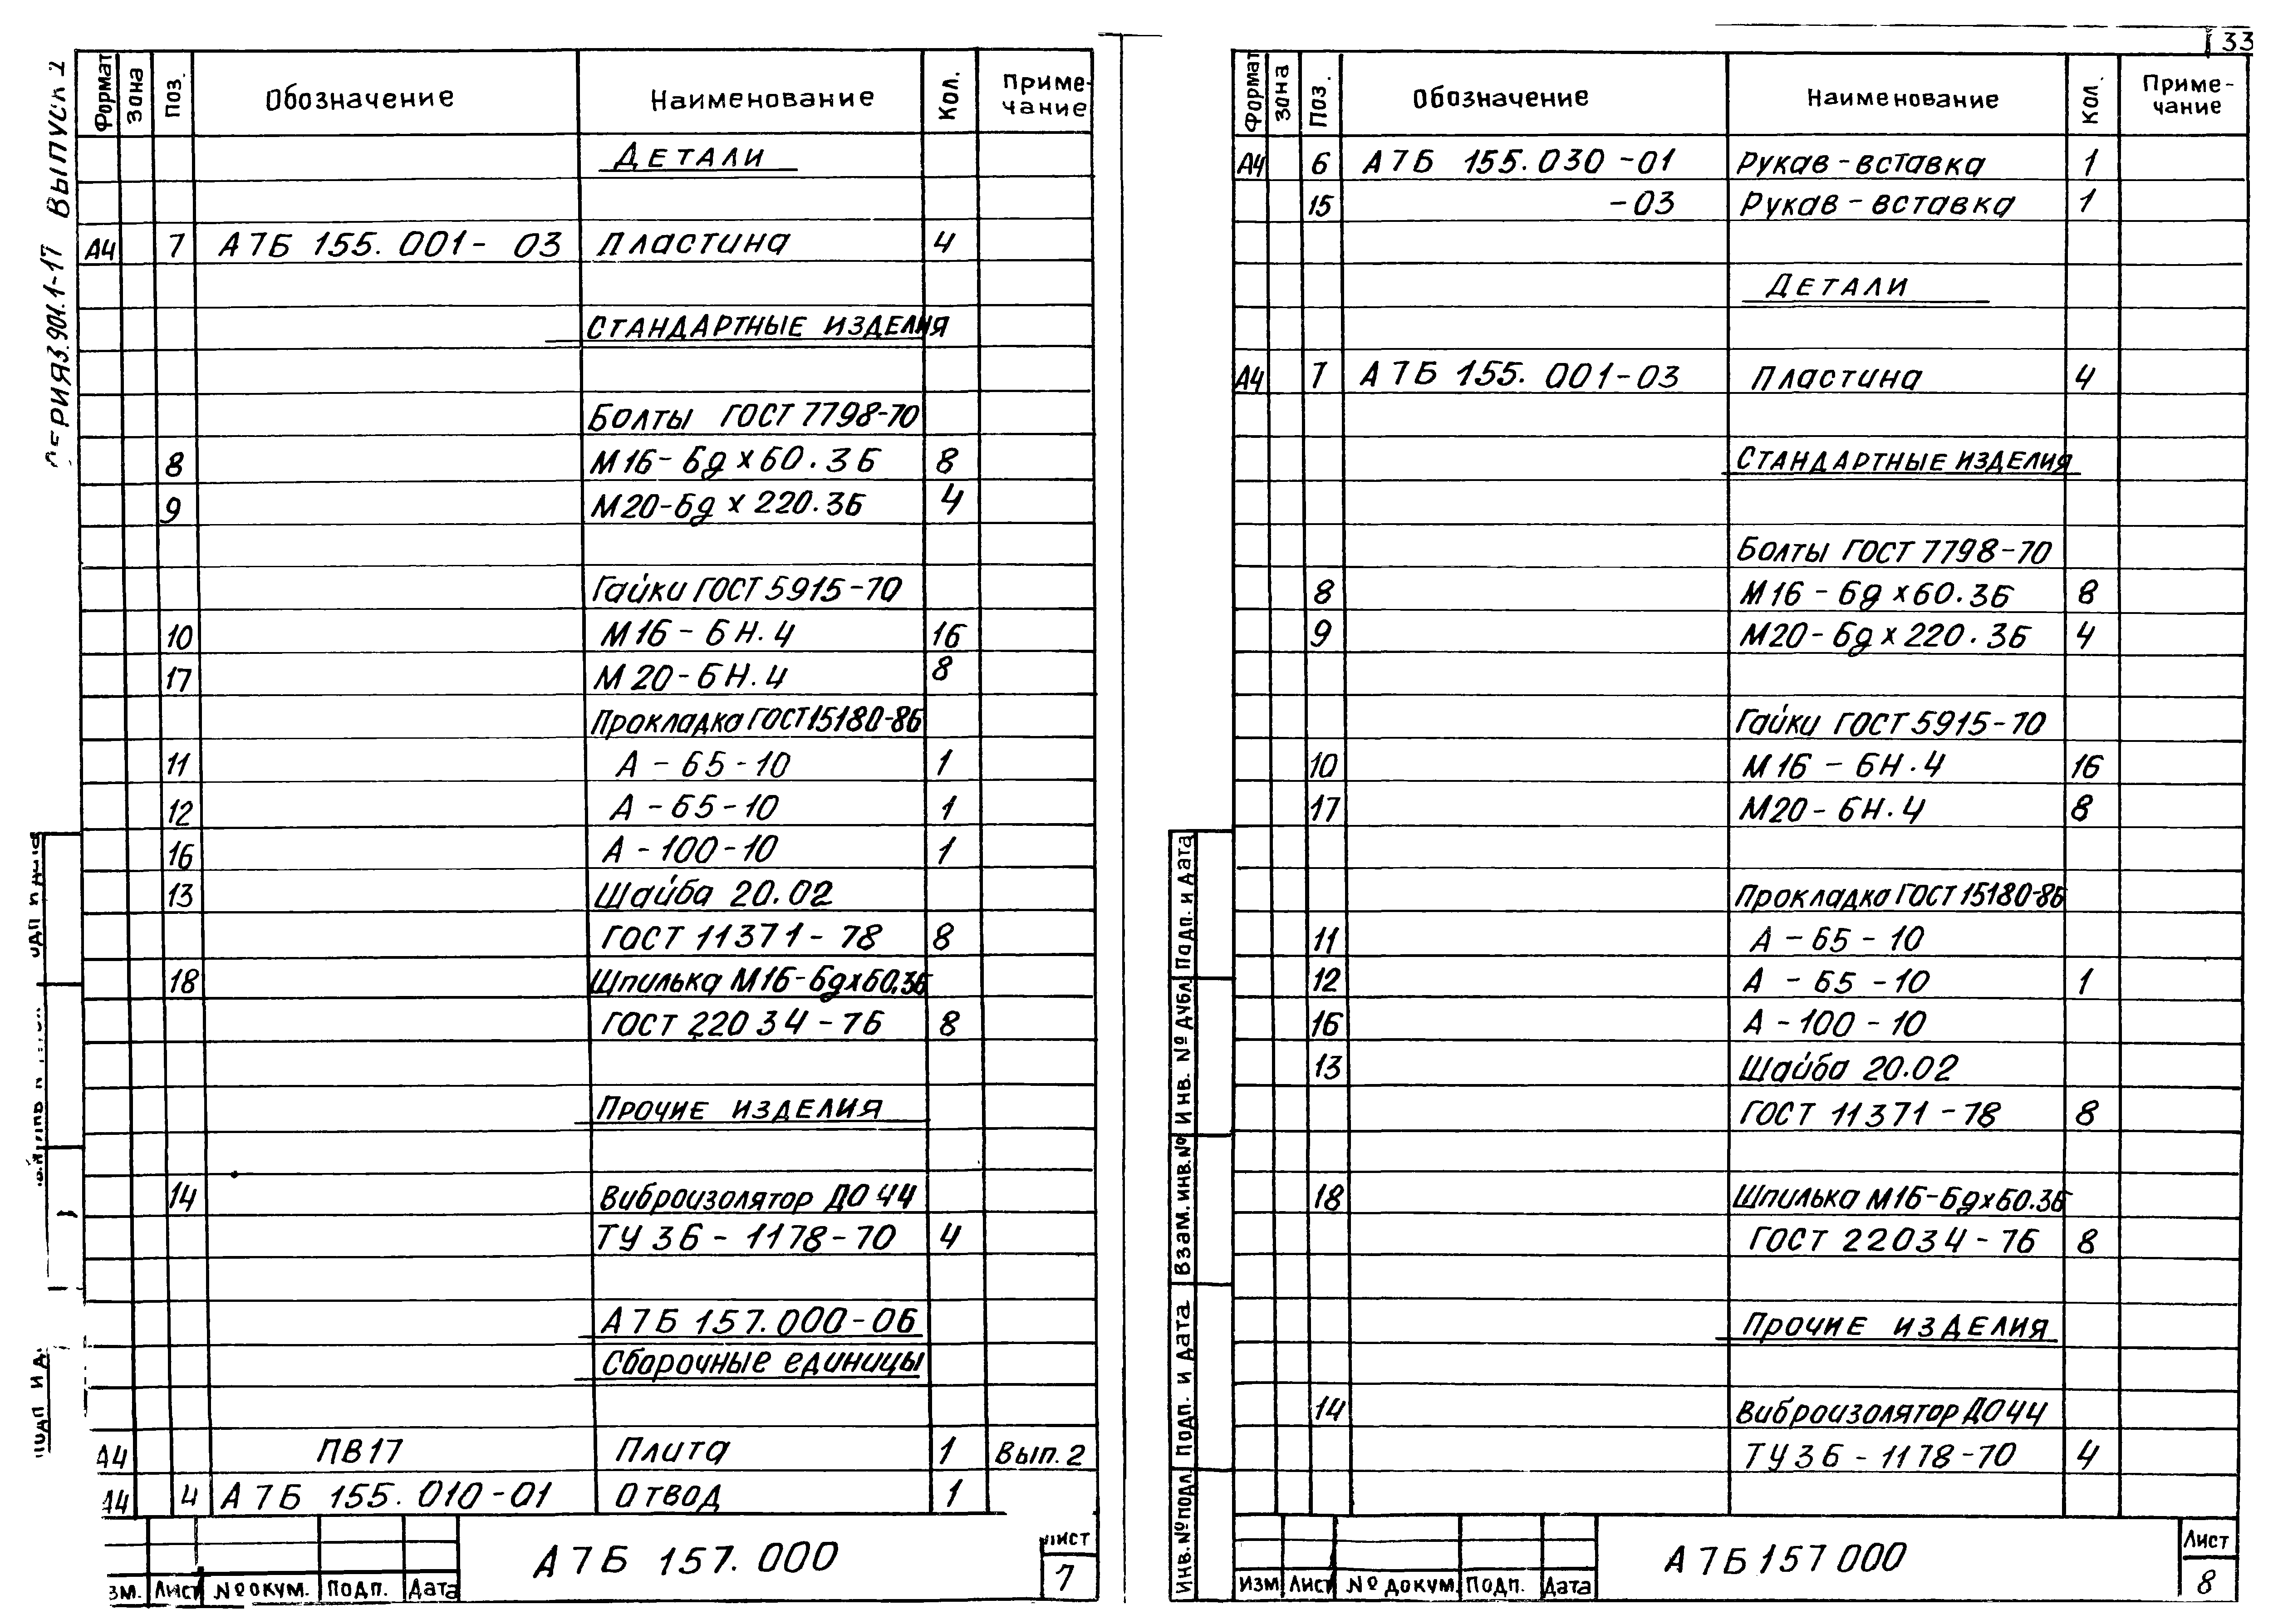 33
Выпуск 2
Формат Зона Поз. Обозначение Наименование Кол. Приме-чание
Детали
А4 7 А7Б 155.001-03 Пластина 4
Стандартные изделия
Болты ГОСТ 7798-70
8 М16-6g х 60.36 8
9 М20-6g х 220.36 4
Гайки ГОСТ 5915-70
10 М16-6Н.4 16
17 М20-6Н.4 8
Прокладка ГОСТ 15180-86
11 А-65-10 1
12 А-65-10 1
16 А-100-10 1
13 Шайба 20.02
ГОСТ 11371-78 8
18 Шпилька М16-6gх60.36
ГОСТ 22034-76 8
Прочие изделия
14 Виброизолятор ДО 44
ТУ 36-1178-70 4
А7Б 157.000-06
Сборочные единицы
А4 ПВ17 Плита 1 Вып. 2
А4 4 А7Б 155.010-01 Отвод 1
А7Б 157.000
Лист
7
Изм. Лист № докум. Подп. Дата
Формат Зона Поз. Обозначение Наименование Кол. Приме-чание
А4 6 А7Б 155.030-01 Рукав-вставка 1
15 -03 Рукав-вставка 1
Детали
А4 7 А7Б 155.001-03 Пластина 4
Стандартные изделия
Болты ГОСТ 7798-70
8 М16-6g х60.36 8
9 М20-6g х 220.36 4
Гайки ГОСТ 5915-70
10 М16-6Н.4 16
17 М20-6Н.4 8
Прокладка ГОСТ 15180-86
11 А-65-10
12 А-65-10 1
16 А-100-10
13 Шайба 20.02
ГОСТ 11371-78 8
18 Шпилька М16-6gх60.36
ГОСТ 22034-76 8
Прочие изделия
14 Виброизолятор ДО44
ТУ 36-1178-70 4
Инв. № подл. Подп. и дата Взам. инв. № Инв. № дубл. Подп. и дата
А7Б 157 000
Лист
8
Изм Лист № докум. Подп. Дата